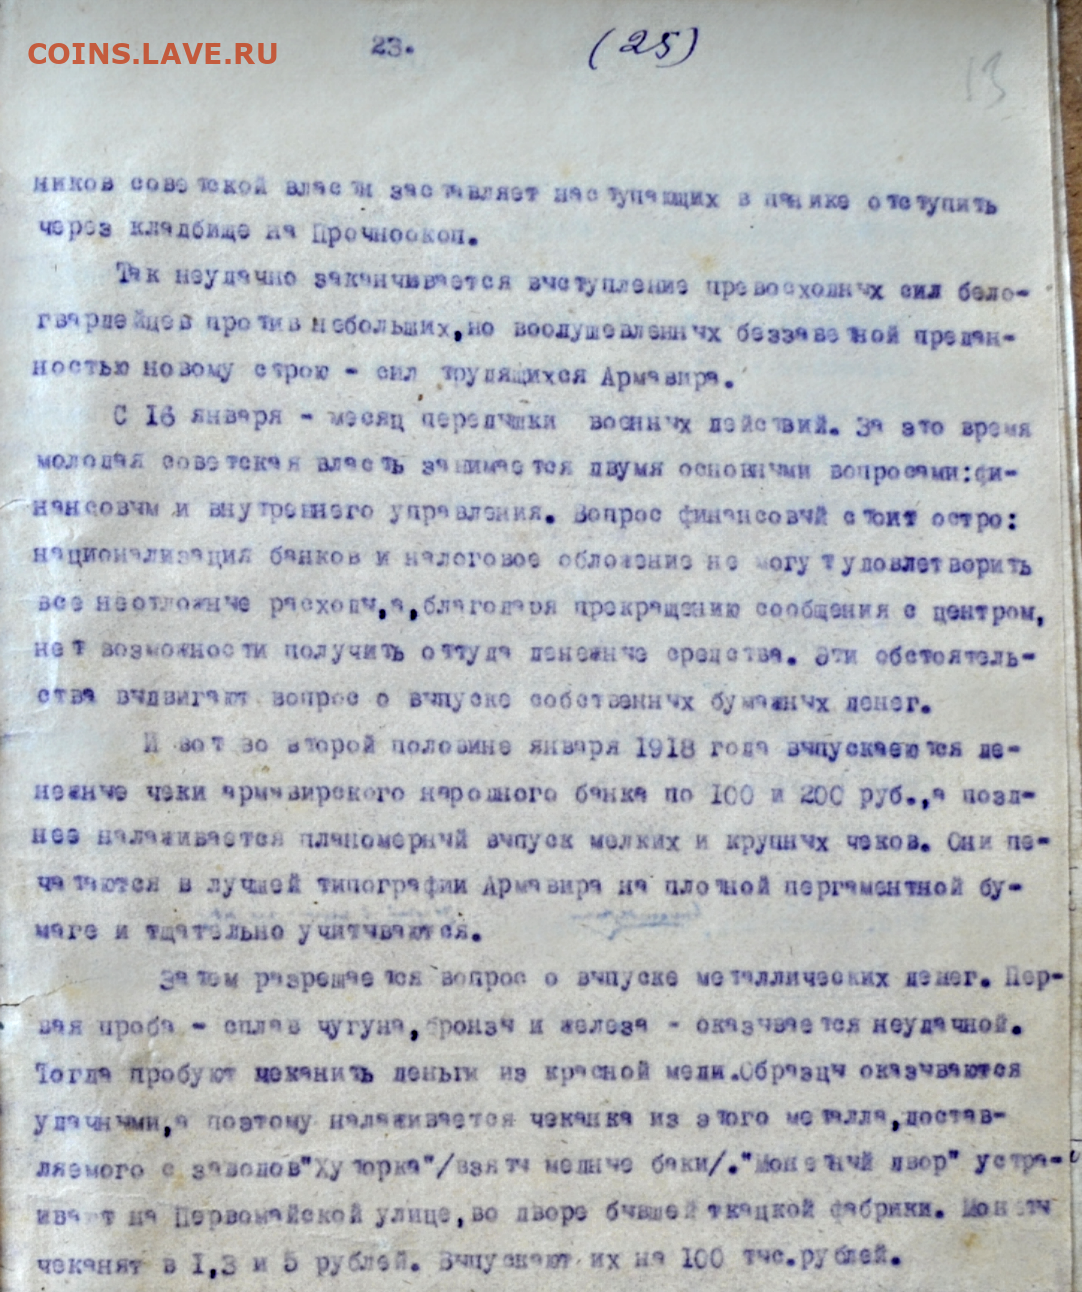 COINS.LAVE.RU
23.
(25)
13
ников советской власти заставляет наступающих в панике отступить
через кладбище на Прочноокоп.
Так неудачно заканчывается выступление превосходных сил бело-
гвардейцев против небольших,но воодушевленных беззаветной предан-
ностью новому строю - сил трудящихся Армавира.
С 16 января - месяц передышки военных действий. За это время
молодая советская власть занимается двумя основными вопросами:фи-
нансовым и внутреннего управления. Вопрос финансовый стоит остро:
национализация банков и налоговое обложение не могут удовлетворить
все неотложные расходы,а,благодаря прекращению сообщения с центром,
нет возможности получить оттуда денежные средства. Эти обстоятель-
ства выдвигают вопрос о выпуске собственных бумажных денег.
И вот во второй половине января 1918 года выпускаеются де-
нежные чеки армавирского народного банка по 100 и 200 руб.,а позд-
нее налаживается планомерный выпуск мелких и крупных чеков. Они пе-
чатаются в лучшей типографии Армавира на плотной пергаментной бу-
маге и тщательно учитываются.
Затем разрешается вопрос о выпуске металлических денег. Пер-
вая проба - сплав чугуна,бронзы и железа - оказывается неудачной.
Тогда пробуют чеканить деньги из красной меди.Образцы оказываются
удачными,а поэтому налаживается чеканка из этого металла,достав-
ляемого с заводов"Хуторка"/взяты медные баки/."Монетный двор" устра-
ивают на Первомайской улице,во дворе бывшей ткацкой фабрики. Монеты
чеканят в 1,3 и 5 рублей. Выпускают их на 100 тыс.рублей.